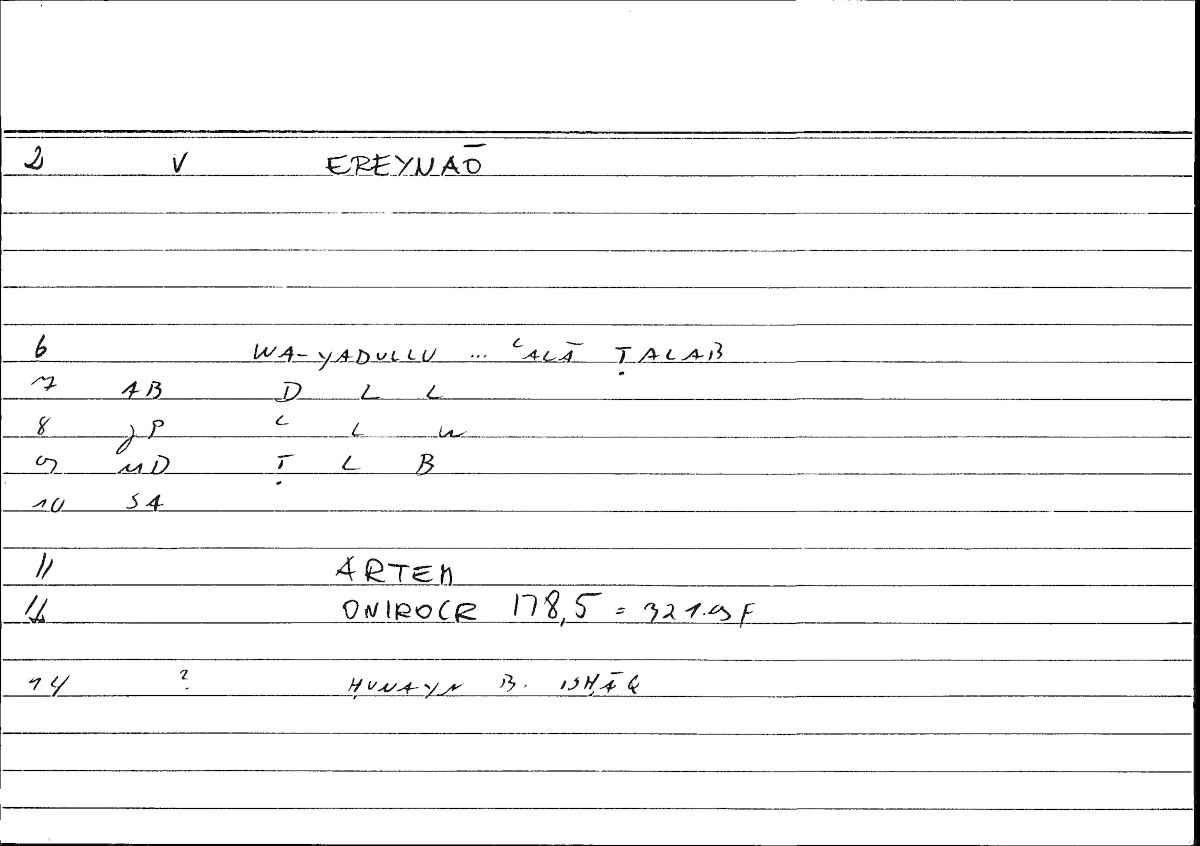 2 V EREYNAŌ
6 WA-YADULLU ... ʿALĀ ṬALAB
7 AB D L L
8 JP ʿ L W
9 MD Ṭ L B
10 SA
11 ARTEM
12 ONIROCR 178,5 = 321.9F
14 ? ḤUNAYN B. ISḤĀQ